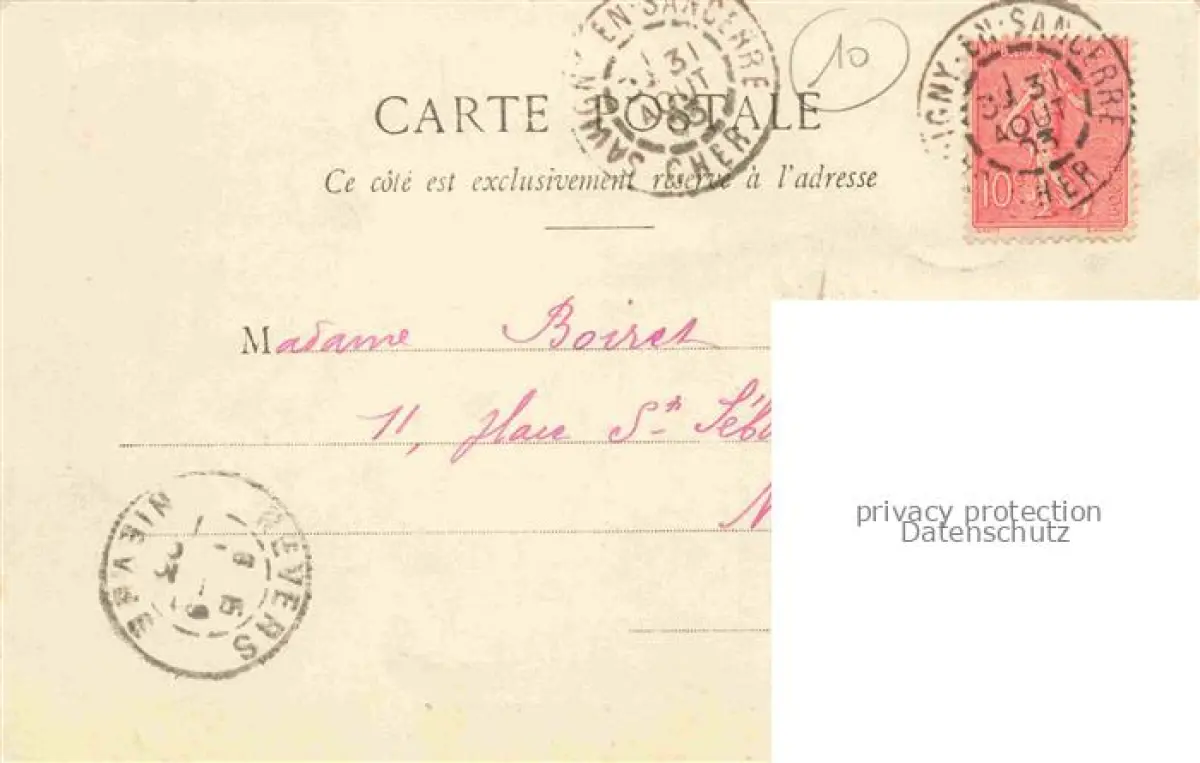 SAVIGNY-EN-SANCERRE
31
AOUT
CHER
10
IGNY-EN-SANCERRE
31
AOUT
HER
10
CARTE POSTALE
Ce côté est exclusivement réservé à l'adresse
Madame Boiret
11, Place St.
N
privacy protection
Datenschutz
NEVERS
NIEVRE